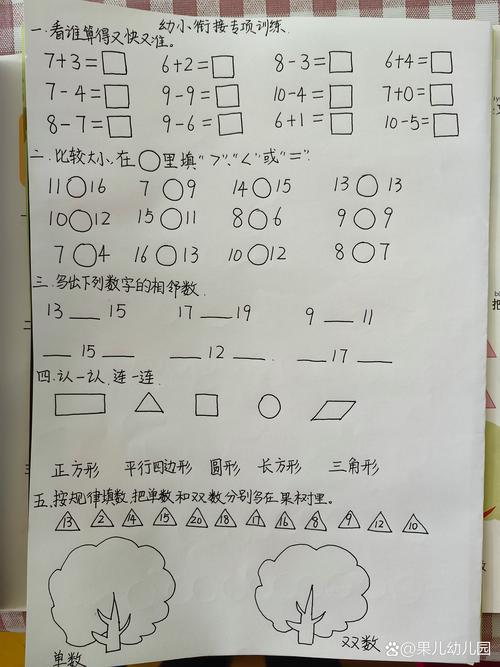 幼小衔接专项训练
一.看谁算得又快又准。
7+3=□ 6+2=□ 8-3=□ 6+4=□
7-4=□ 9-9=□ 10-4=□ 7+0=□
8-7=□ 9-6=□ 6+1=□ 10-5=□
二.比较大小,在○里填">"、"<"或"="
11○16 7○9 14○15 13○13
10○12 15○11 8○6 9○9
7○4 16○13 10○12 8○7
三.写出下列数字的相邻数.
13 ___ 15 17 ___ 19 9 ___ 11
___ 15 ___ ___ 12 ___ ___ 17 ___
四.认一认,连一连.
正方形 平行四边形 圆形 长方形 三角形
五.按规律填数,把单数和双数分别写在果树里。
13 2 14 15 20 18 17 16 8 9 12 10
单数 双数
把
果儿幼儿园